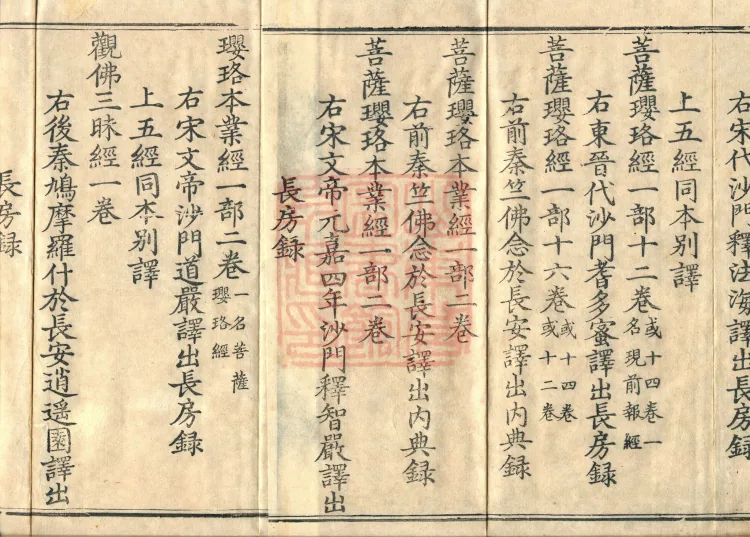 右宋代沙門釋法海譯出長房録
上五經同本別譯
菩薩瓔珞經一部十二卷或十四卷一名現前報經
右東晉代沙門耆多蜜譯出長房録
菩薩瓔珞經一部十六卷或十四卷或十二卷
右前秦竺佛念於長安譯出内典録
菩薩瓔珞本業經一部二卷
右前秦竺佛念於長安譯出内典録
菩薩瓔珞本業經一部二卷
右宋文帝元嘉四年沙門釋智嚴譯出
長房録
瓔珞本業經一部二卷一名菩薩瓔珞經
右宋文帝沙門道嚴譯出長房録
上五經同本別譯
觀佛三昧經一卷
右後秦鳩摩羅什於長安逍遥園譯出
長房録